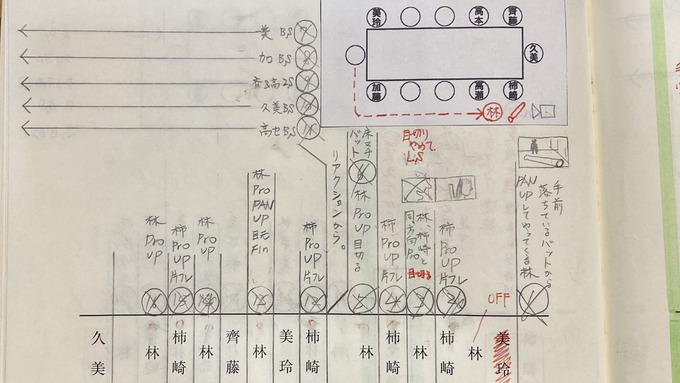 美BS 7
加BS 8
久美BS
高七BS
美玲
高本
齊藤
久美
加藤
高瀬
柿崎
林
目切り
やめて
L.S
手前
落ちているバットから
PAN UPしてやってくる林
柿 Pro UP 片フレ
林、柿崎と
同方向Pro
目切る
柿 Pro UP 片フレ
床マチ
バット
林 Pro UP 目切る
リアクションから。
柿 Pro UP 片フレ
林 Pro PAN UP 目元 Fin
林 Pro UP
柿 Pro UP 片フレ
林 Pro UP
OFF
美玲
林
柿崎
林
柿崎
林
柿崎
美玲
林
齊藤
林
柿崎
林
久美